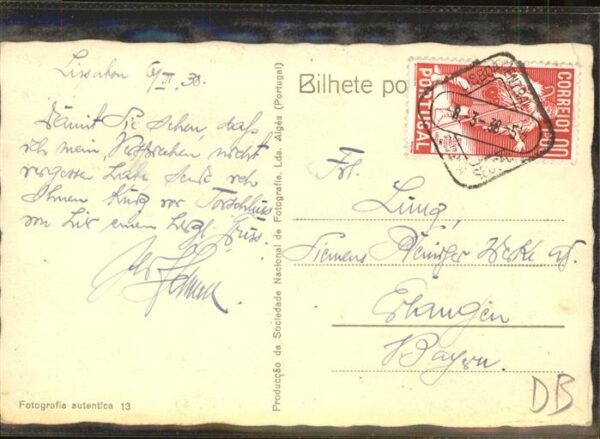 Lissabon 6/III.38.
Damit Sie sehen, daß
ich mein Versprechen nicht
vergessen habe sende ich
Ihnen kurz vor Torschluss
von hier einen herzl. Gruss.
Bilhete po
CORREIO 1$00
PORTUGAL
LISBOA CENTRAL
8-3-38-5
Frl.
Lung,
Siemens Reiniger Werke
Erlangen
Bayern.
DB
Producção da Sociedade Nacional de Fotografia, Lda. Algés (Portugal)
Fotografia autentica 13